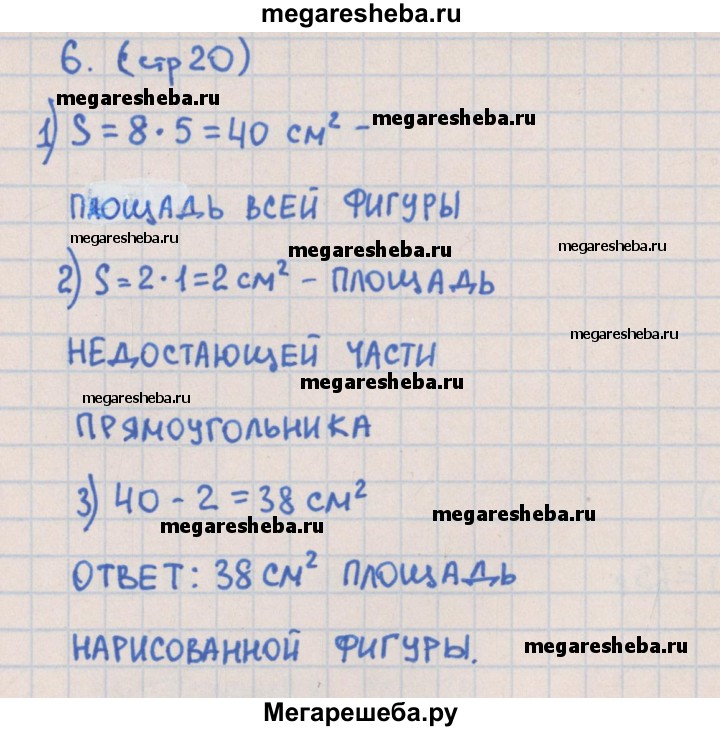 megaresheba.ru
6. (стр 20)
megaresheba.ru
1) S = 8 · 5 = 40 см² -
megaresheba.ru
ПЛОЩАДЬ ВСЕЙ ФИГУРЫ
megaresheba.ru
megaresheba.ru
megaresheba.ru
2) S = 2 · 1 = 2 см² - ПЛОЩАДЬ
megaresheba.ru
НЕДОСТАЮЩЕЙ ЧАСТИ
megaresheba.ru
megaresheba.ru
ПРЯМОУГОЛЬНИКА
3) 40 - 2 = 38 см²
megaresheba.ru
megaresheba.ru
ОТВЕТ: 38 см² ПЛОЩАДЬ
НАРИСОВАННОЙ ФИГУРЫ.
megaresheba.ru
Мегарешеба.ру